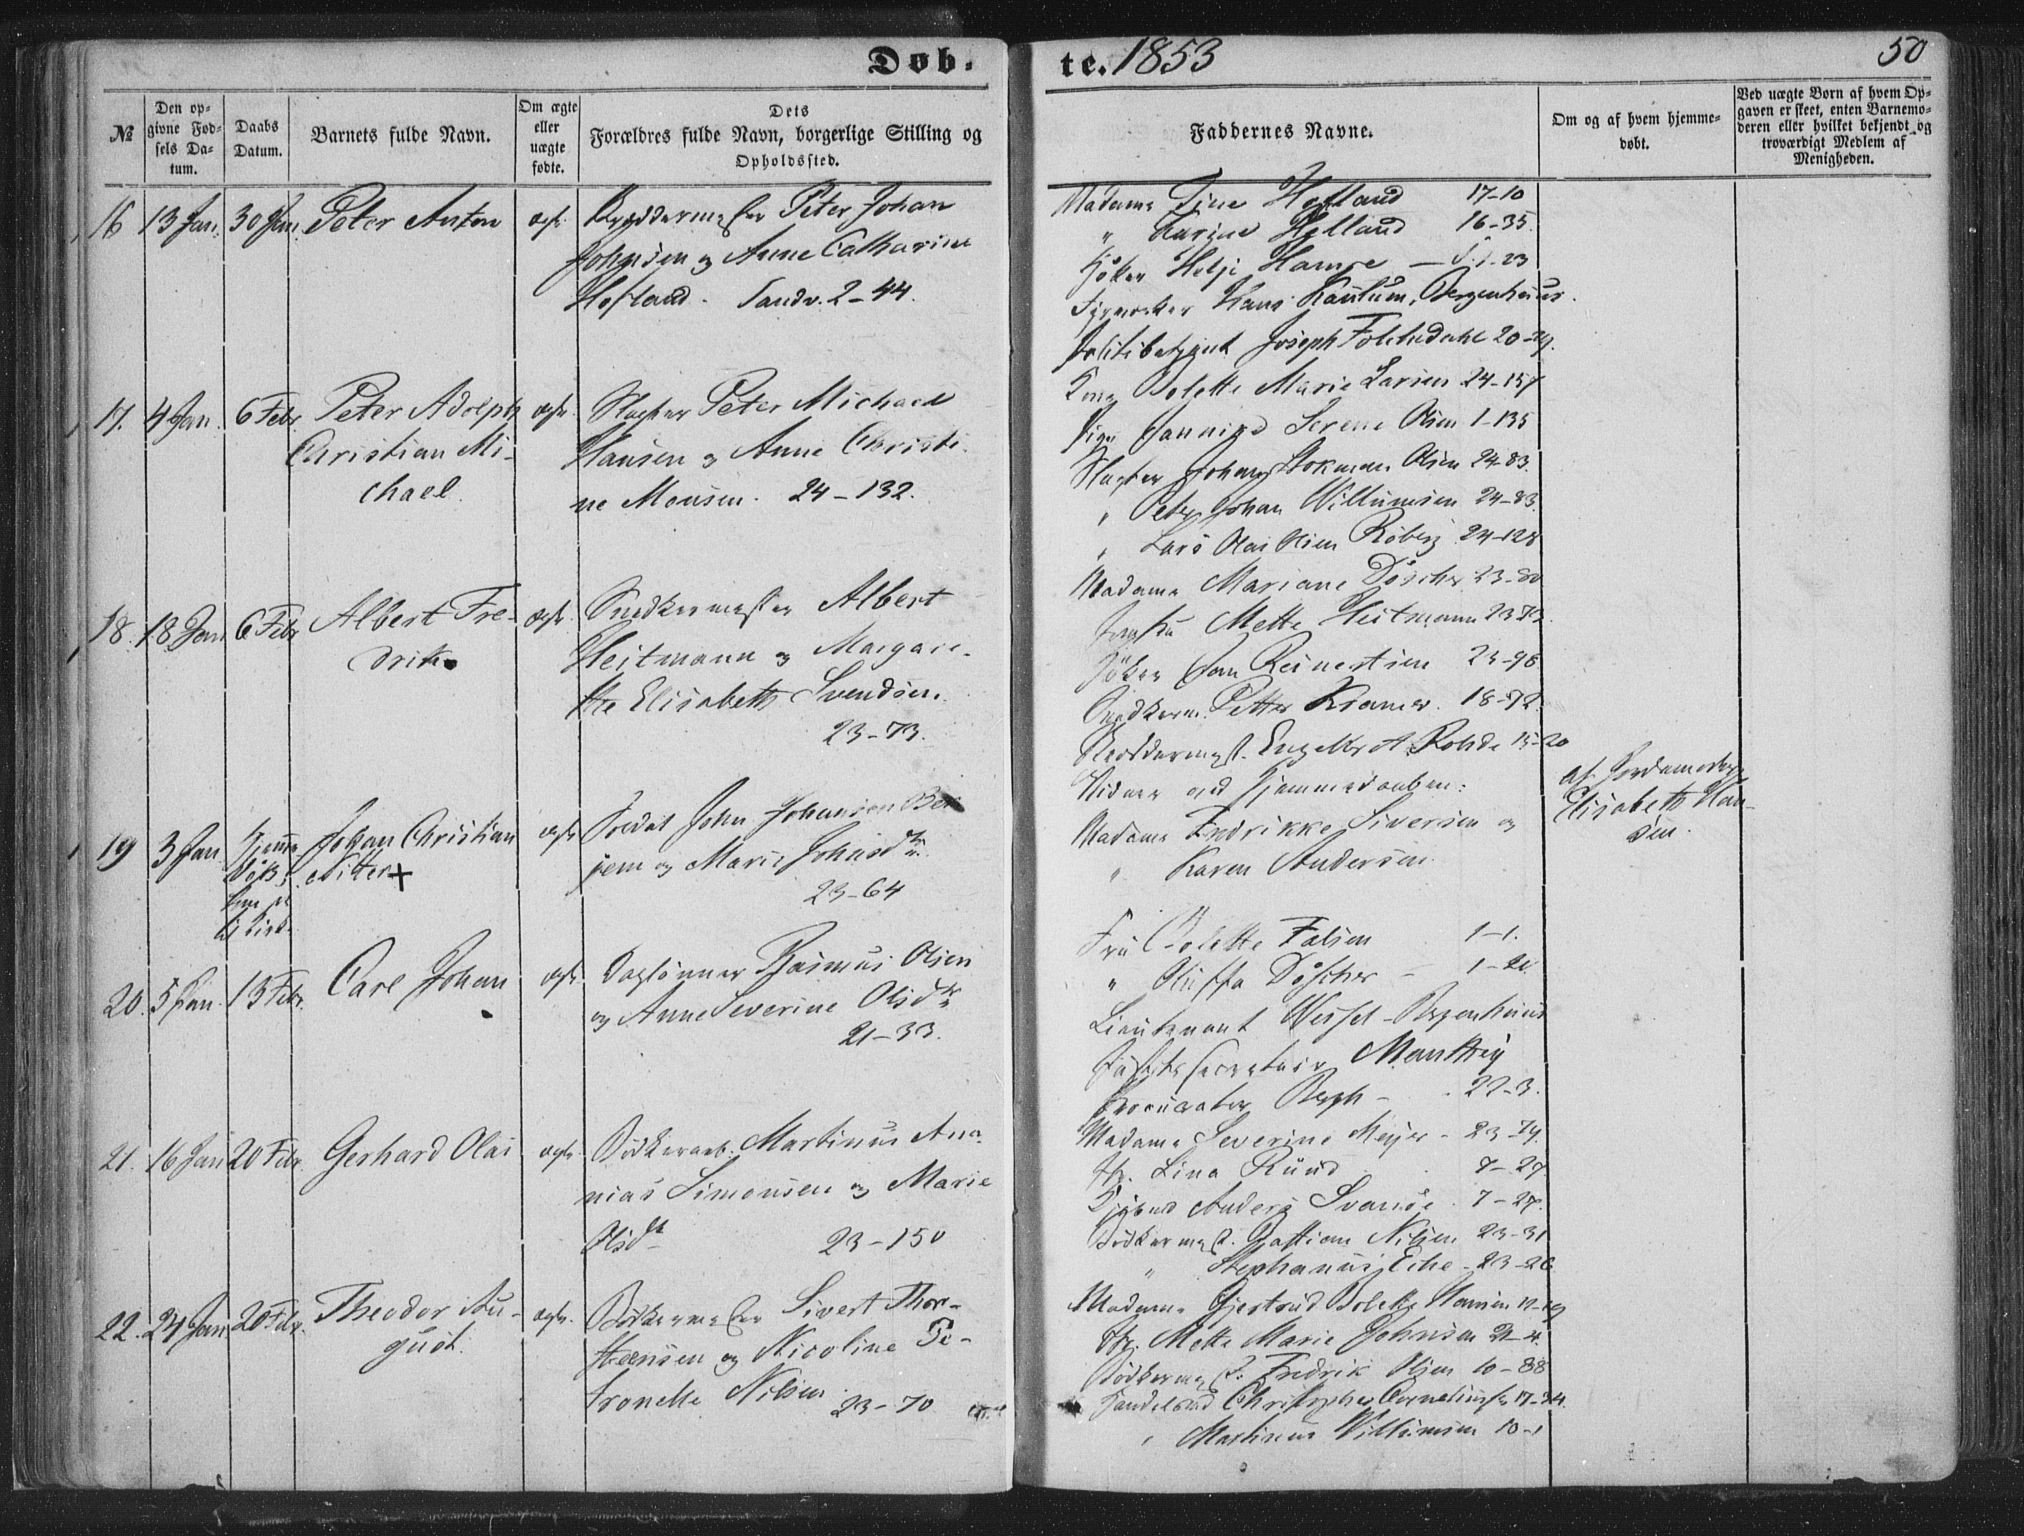 Døb-
te. 1853
50
№
Den op-
givne Fød-
sels Da-
tum.
Daabs
Datum.
Barnets fulde Navn.
Om ægte
eller
uægte
fødte.
Dets
Forældres fulde Navn, borgerlige Stilling og
Opholdssted.
Faddernes Navne.
Om og af hvem hjemme-
døbt.
Ved uægte Børn af hvem Op-
gaven er skeet, enten Barnemo-
deren eller hvilket bekjendt og
troværdigt Medlem af
Menigheden.
16 13 Jan. 30 Jan. Peter Anton ægte Peter Johan
Johnsen og Anne Catharine
Hofland. Sandv. 2-44.
Madame Tine Hofland 17-10
" Karine Helland 16-35.
Høker Helje 23
Hans Kaulum, Bergenhuus.
Politibetjent Joseph 20-29.
Kone Bolette Marie Larsen 24-157
17. 4 Jan. 6 Febr. Peter Adolph
Christian Mi-
chael
ægte. Slagter Peter Michael
Hansen og Anne Christi-
ne Monsen. 24-132.
Pige Serene Olsen 1-135
Slagter Johan Olsen 24-83.
" Peter Johan Willumsen 24-83
" Lars Olai Olsen Roberg 24-128
18. 18 Jan 6 Febr Albert Fre-
drik
ægte. Snedkermester Albert
Heitmann og Margare-
the Elisabeth Svendsen.
23-73.
Madame Mariane Döscher 23-80
Jomfru Mette Heitmann 23-73
Høker Reinertsen 23-98.
Snedkerm. Petter Kramer. 18-72.
Rohde 15-20
19 3 Jan Hjemme
døbt,
Johan Christian
Nitter +
ægte Soldat John Johansen Ber
jem og Marie Johnsdtr.
23-64
Vidner ved Hjemmedaaben:
Madame Fredrikke Siversen og
" Karen Andersen.
af Jordemoder
Elisabeth Han-
sen.
20. 5 Jan. 13 Febr. Carl Johan ægte. Daglønner Rasmus Olsen
og Anne Severine Olsdtr
21-33.
Fru Bolette Falsen 1-1.
" Döscher - 1-20
Lieutenant Wessel - Bergenhuus
Manthey
Procurator Bergh - 22-3.
21. 16 Jan 20 Febr. Gerhard Olai ægte. Bødkerarb. Martinus Ana-
nias Simonsen og Marie
Olsdtr 23-150
Madame Severine Meyer - 23-79.
Lina Ruud 7-27
Anders Svanøe. 7-27.
Bødkermest. Bastian Nilsen 23-31
" Stephanus Eche - 23-26
22. 24 Jan 20 Febr. Theodor Au-
gust.
ægte. Bødkermester Sivert Thor-
stensen og Nicoline Pe-
tronelle Nilsen.
23-70
Madame Gjertrud Bolette Hansen 17-19
Mette Marie Johnsen
Bødkermest. Fredrik Olsen 10-88
Christopher Corneliussen 17-34.
" Martinus Willumsen 10-1